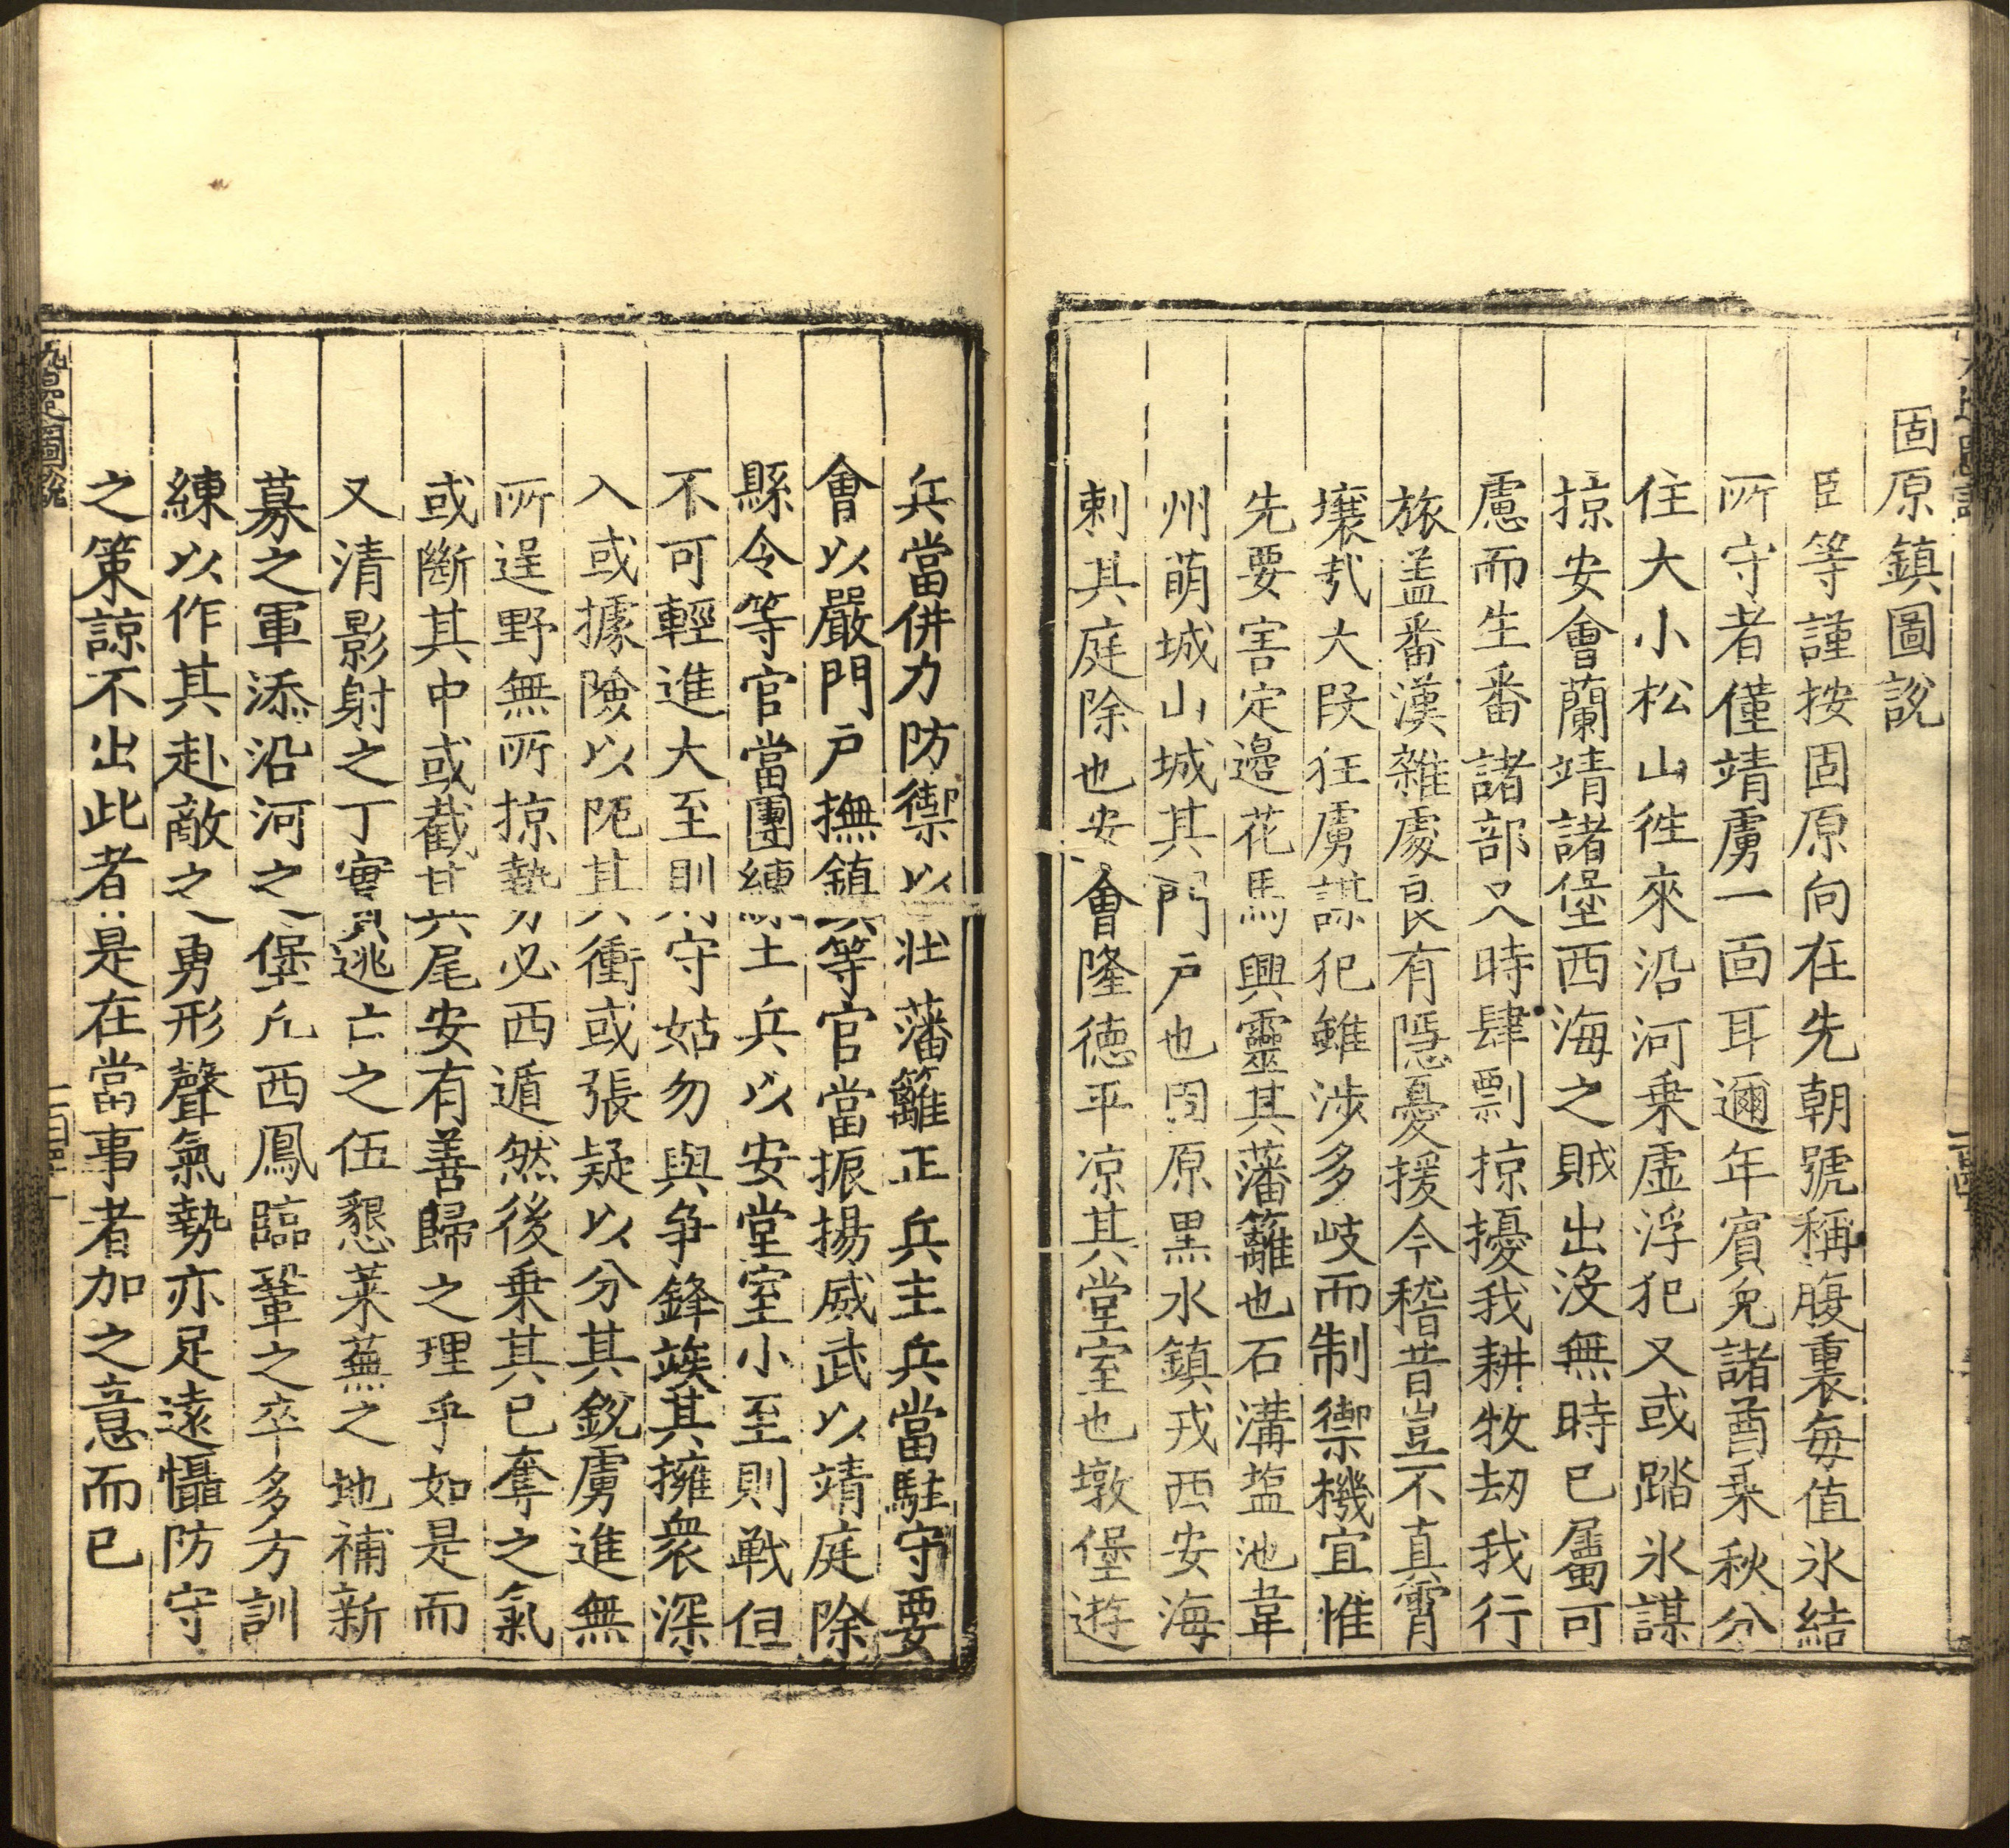 固原鎮圖說
臣等謹按固原向在先朝號稱腹裏每值氷結
所守者僅靖虜一面耳邇年賓兔諸酋乗秋分
住大小松山徃來沿河乗虛浮犯又或踏氷謀
掠安會蘭靖諸堡西海之賊出沒無時已屬可
慮而生番諸部又時肆剽掠擾我耕牧刼我行
旅盖番漢雜處良有隱憂援今稽昔豈不真霄
壤㢤大叚狂虜謀犯雖涉多岐而制禦機宜惟
先要害定邉花馬興靈其藩籬也石溝塩池韋
州萌城山城其門户也固原黑水鎮戎西安海
剌其庭除也安會隆德平凉其堂室也墩堡遊
兵當併力防禦以壯藩籬正兵主兵當駐守要
會以嚴門户撫鎮等官當振揚威武以靖庭除
縣令等官當團練土兵以安堂室小至則戰但
不可輕進大至則守姑勿與争鋒竢其擁衆深
入或據險以阨其衝或張疑以分其銳虜進無
所逞野無所掠勢必西遁然後乗其已奪之氣
或斷其中或截其尾安有善歸之理乎如是而
又清影射之丁實逃亡之伍懇萊蕪之地補新
募之軍添沿河之堡凢西鳳臨鞏之卒多方訓
練以作其赴敵之勇形聲氣勢亦足遠懾防守
之策諒不出此者是在當事者加之意而已
九邉圖說